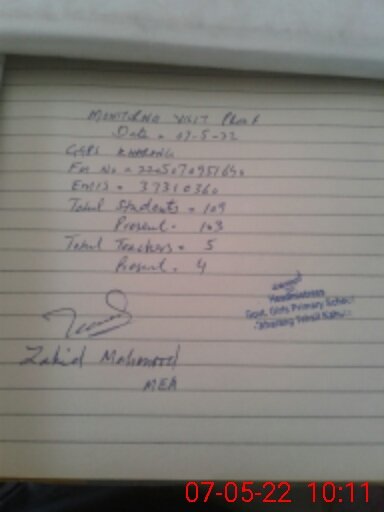 Monitoring Visit Proof
Date = 07-5-22
GGPS Kharang
Fm No = 
Emis = 37310360
Total Students = 109
Present = 103
Total Teachers = 5
Present = 4
Headmistress
Govt. Girls Primary School
Kharang Tehsil
Zahid Mahmood
MEA
07-05-22 10:11